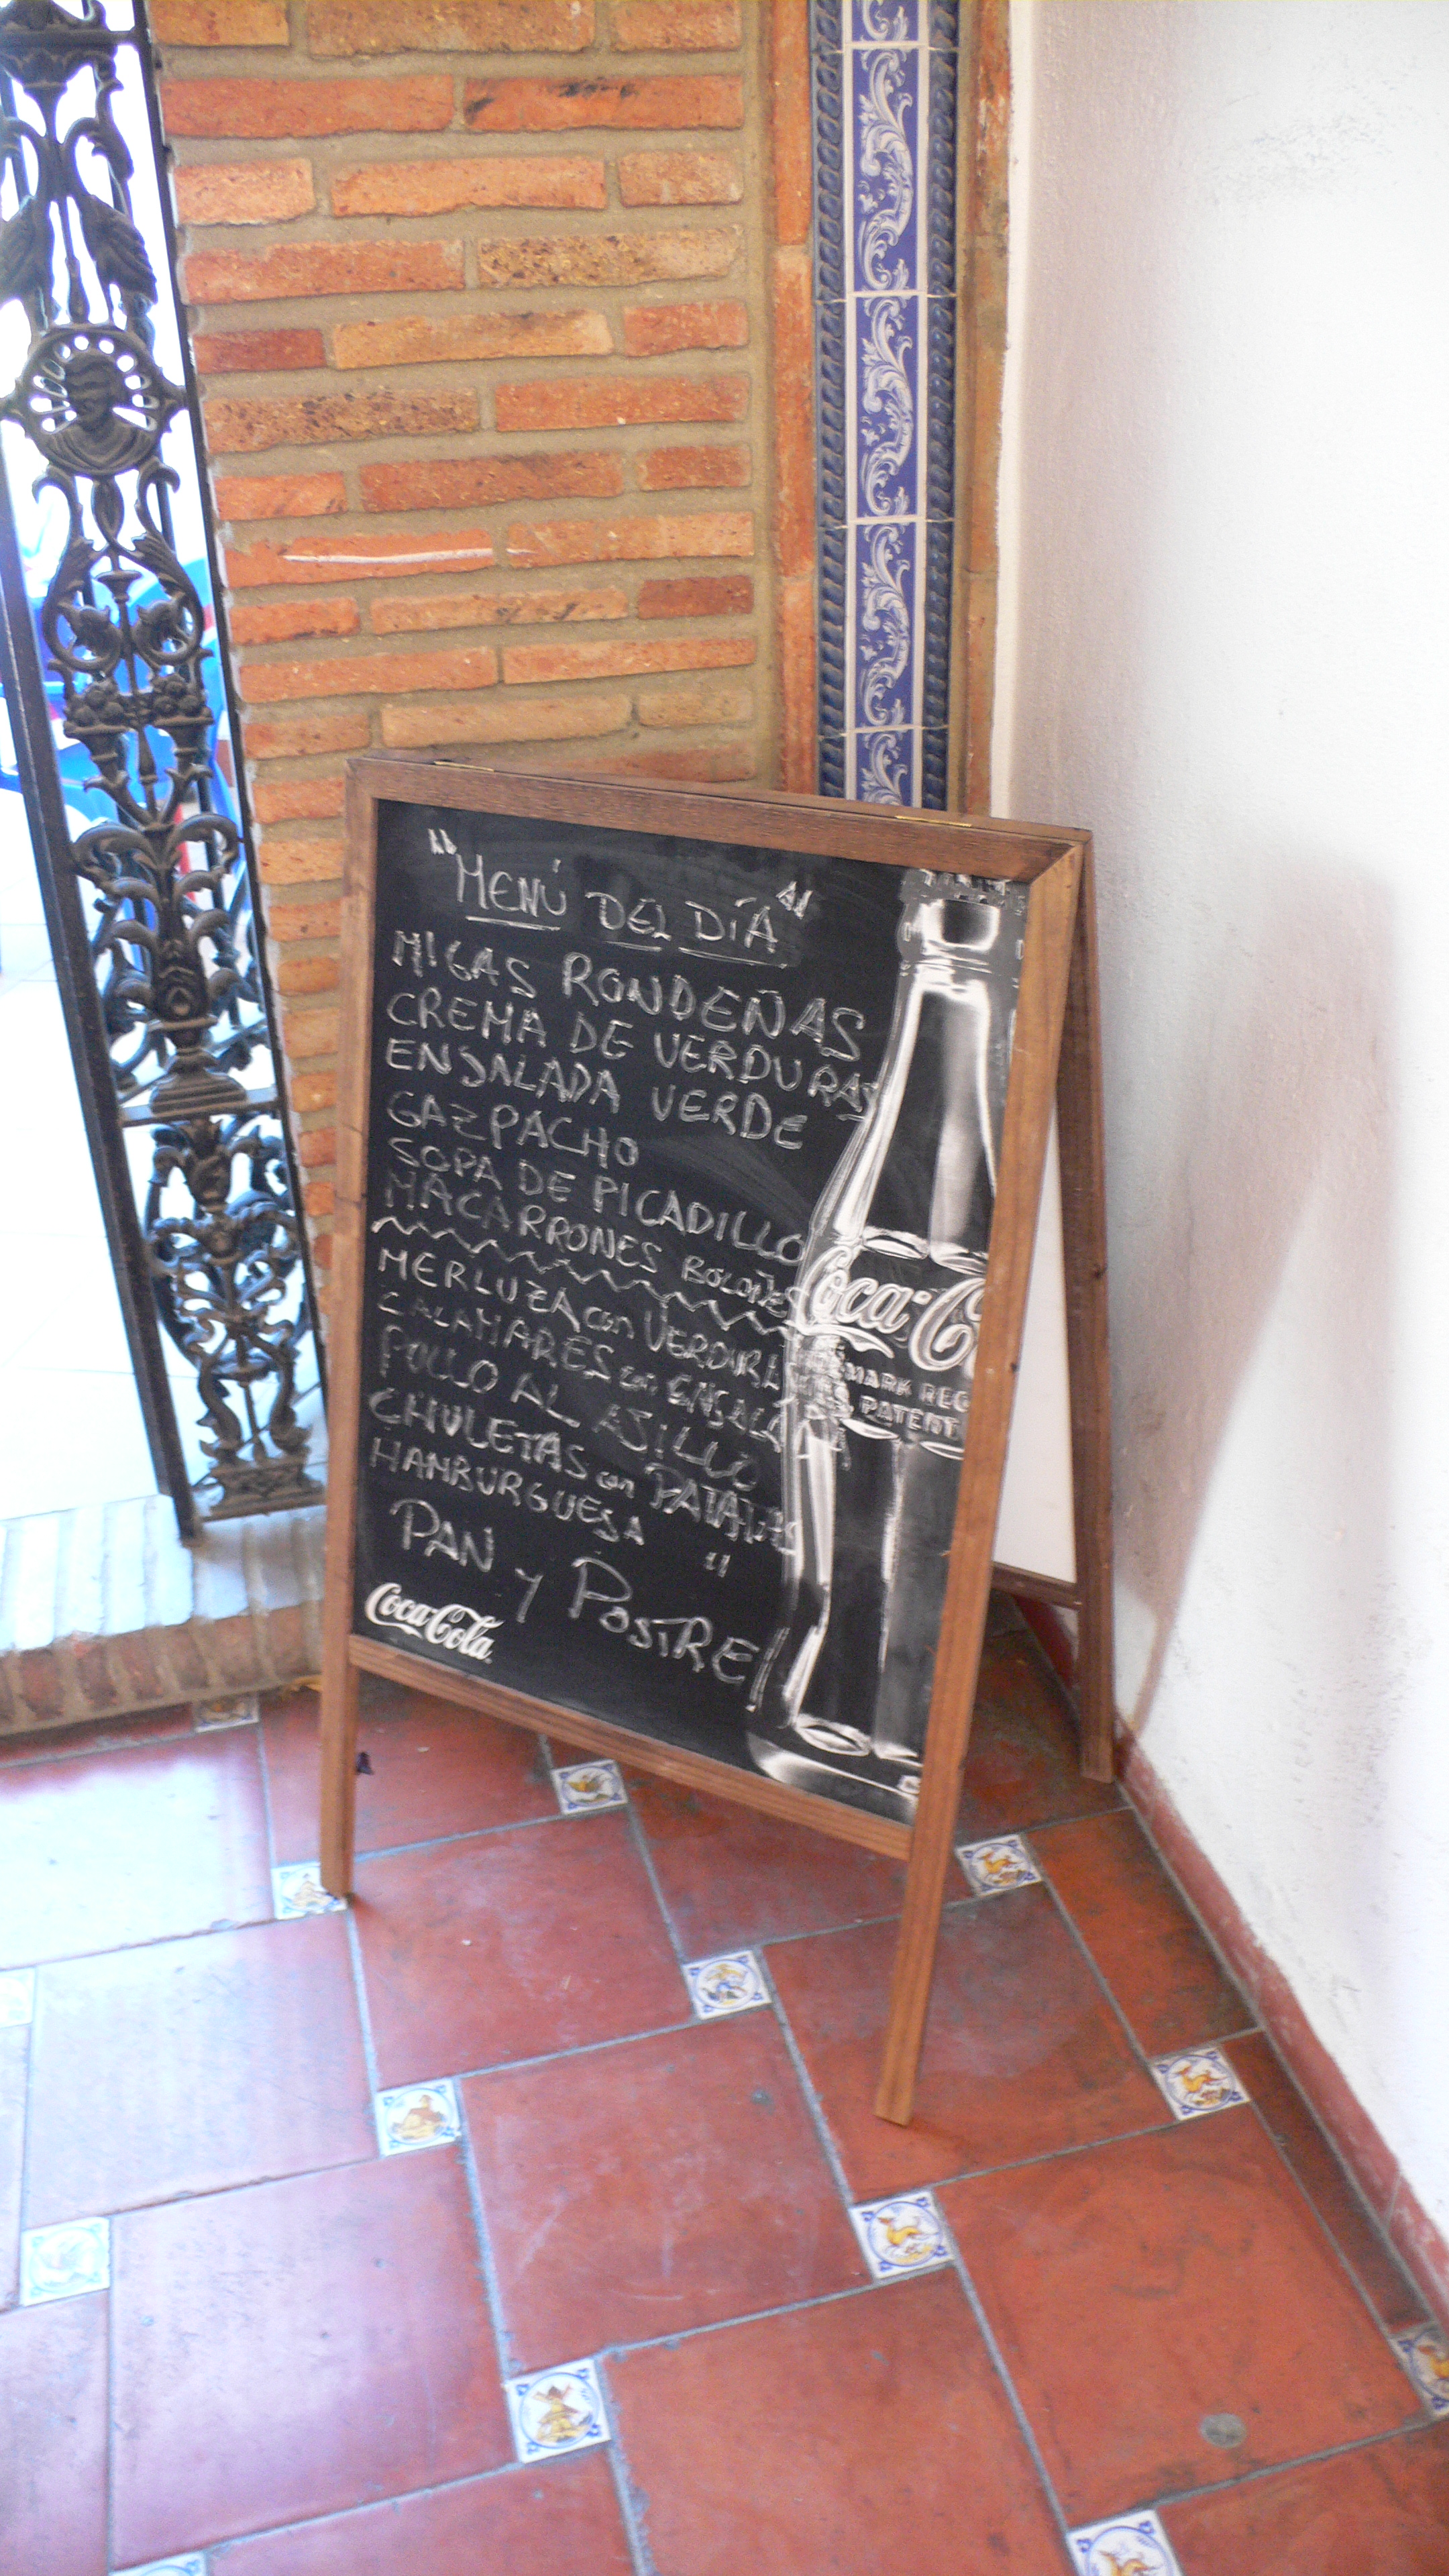 "MENÚ DEL DÍA"
MIGAS RONDEÑAS
CREMA DE VERDURAS
ENSALADA VERDE
GAZPACHO
SOPA DE PICADILLO
MACARRONES BOLOÑES
MERLUZA con VERDURA
CALAMARES con ENSALA
POLLO AL AJILLO
CHULETAS con PATATAS
HAMBURGUESA "
PAN y POSTRE
Coca-Cola
Coca-C
MARK REG
PATENT